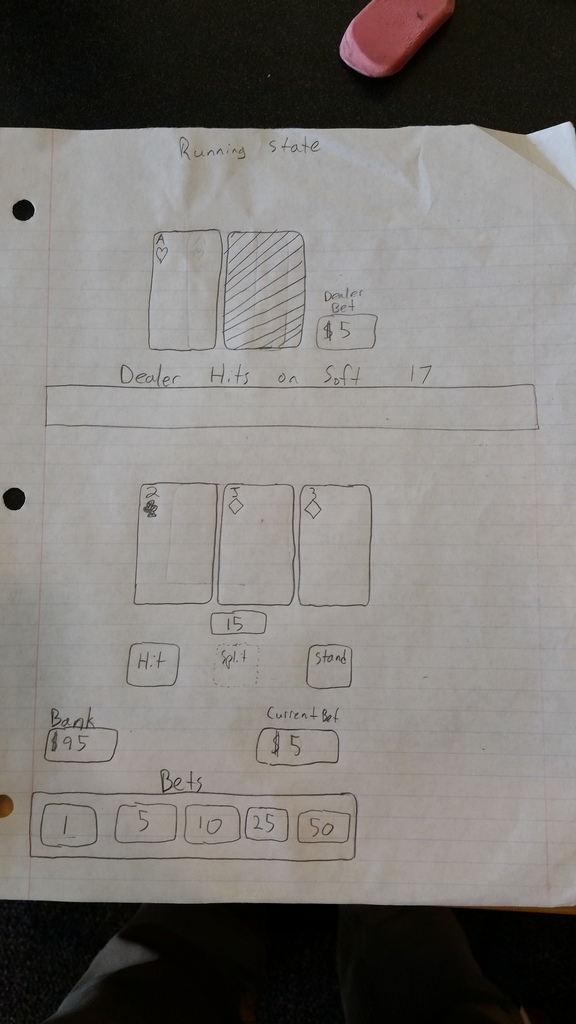 Running State
A
Dealer
Bet
$5
Dealer Hits on Soft 17
2 J 3
15
Hit Split Stand
Bank Current Bet
$95 $5
Bets
1 5 10 25 50